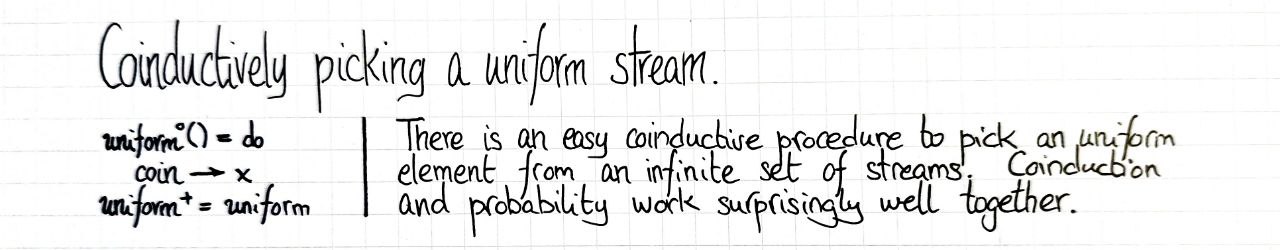 Coinductively picking a uniform stream.
uniform°() = do
coin → x
uniform⁺ = uniform
There is an easy coinductive procedure to pick an uniform
element from an infinite set of streams. Coinduction
and probability work surprisingly well together.